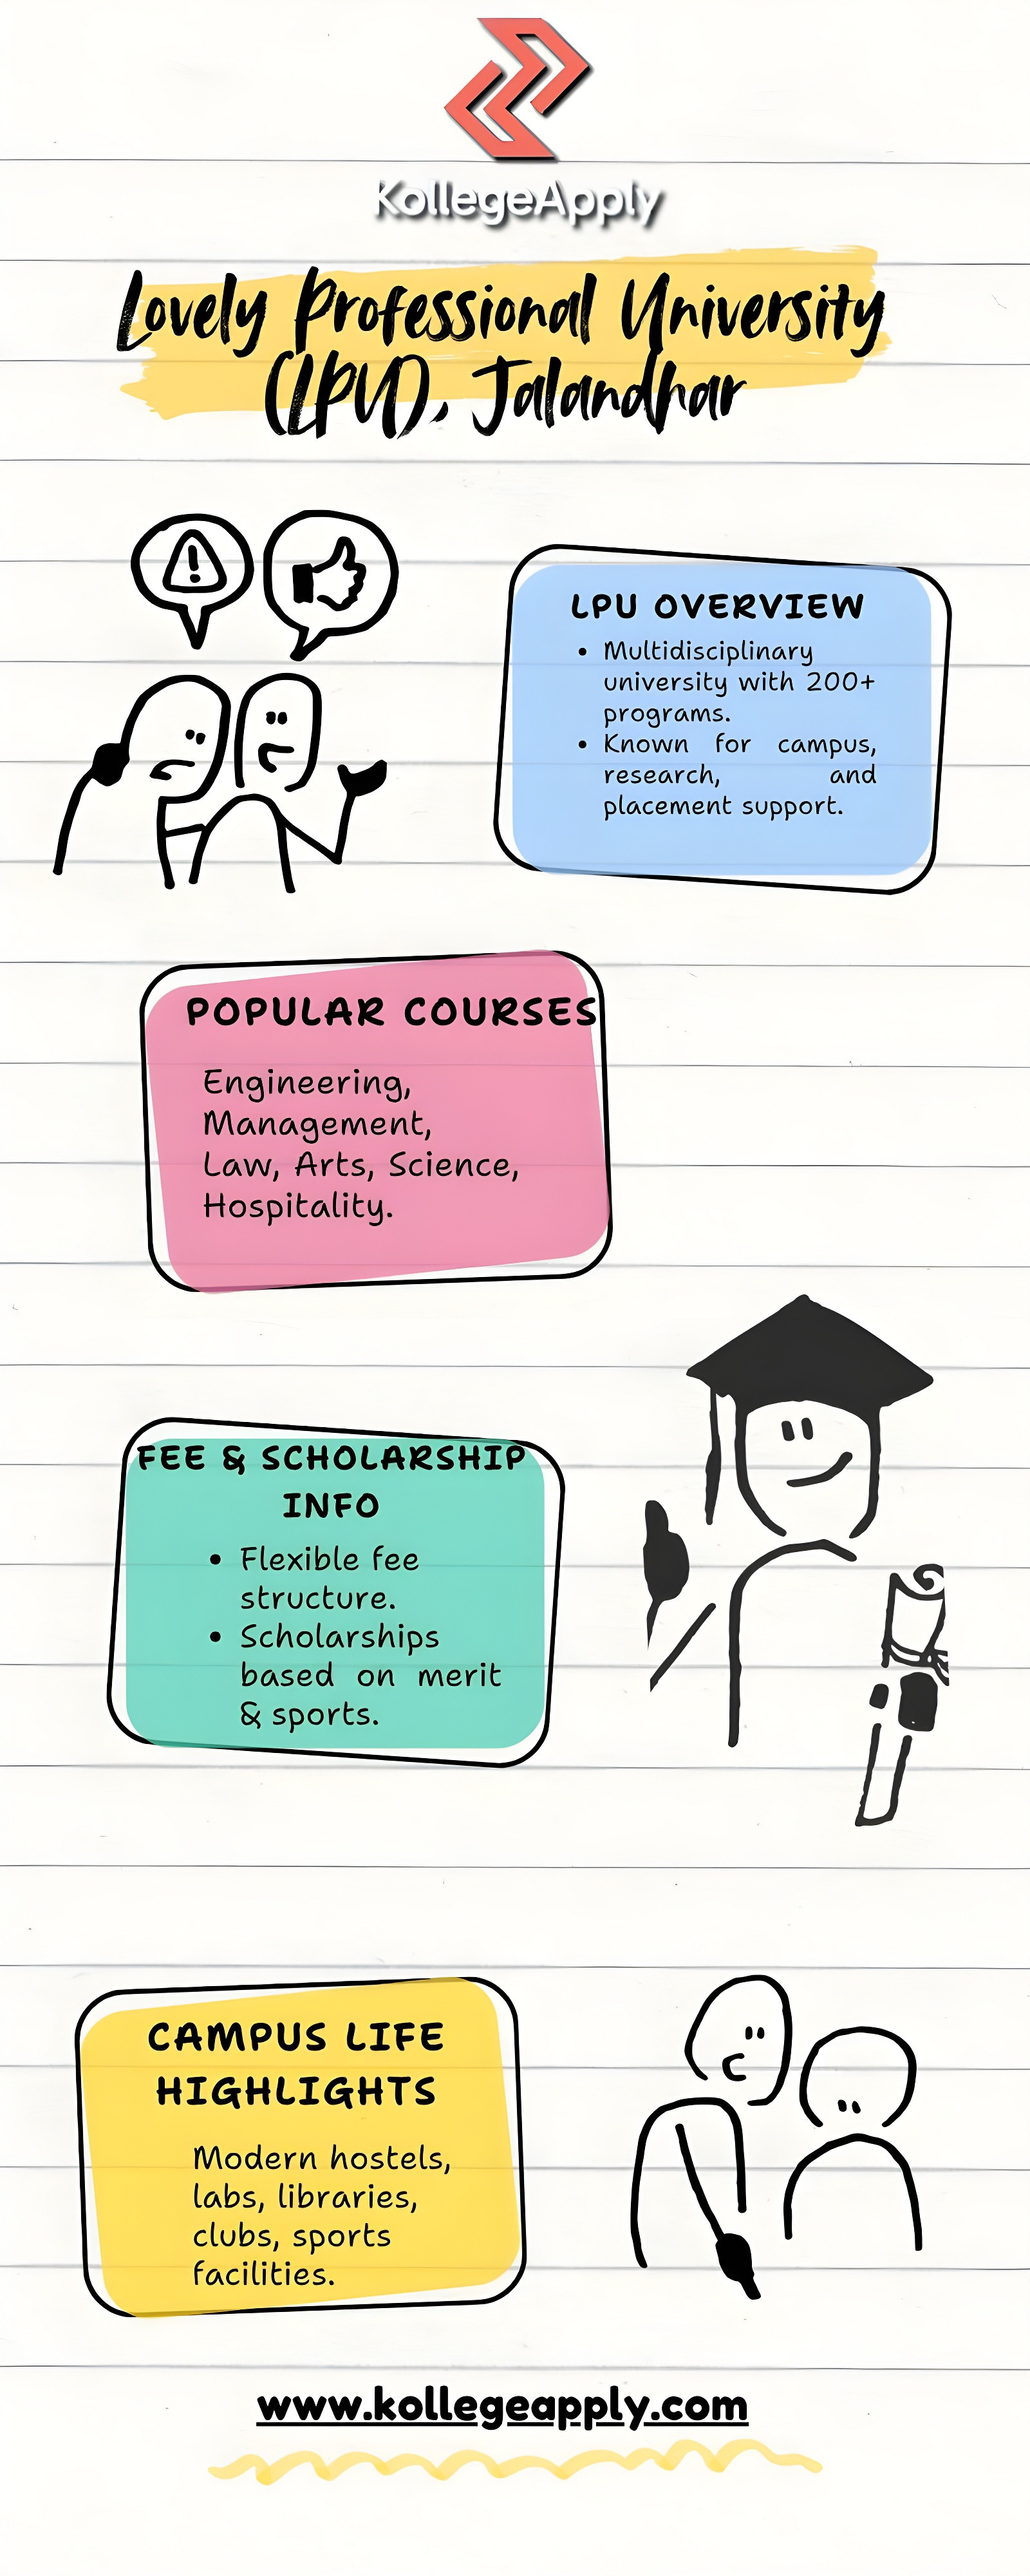 KollegeApply
Lovely Professional University
(LPU), Jalandhar
LPU OVERVIEW
• Multidisciplinary
university with 200+
programs.
• Known for campus,
research, and
placement support.
POPULAR COURSES
Engineering,
Management,
Law, Arts, Science,
Hospitality.
FEE & SCHOLARSHIP
INFO
• Flexible fee
structure.
• Scholarships
based on merit
& sports.
CAMPUS LIFE
HIGHLIGHTS
Modern hostels,
labs, libraries,
clubs, sports
facilities.
www.kollegeapply.com